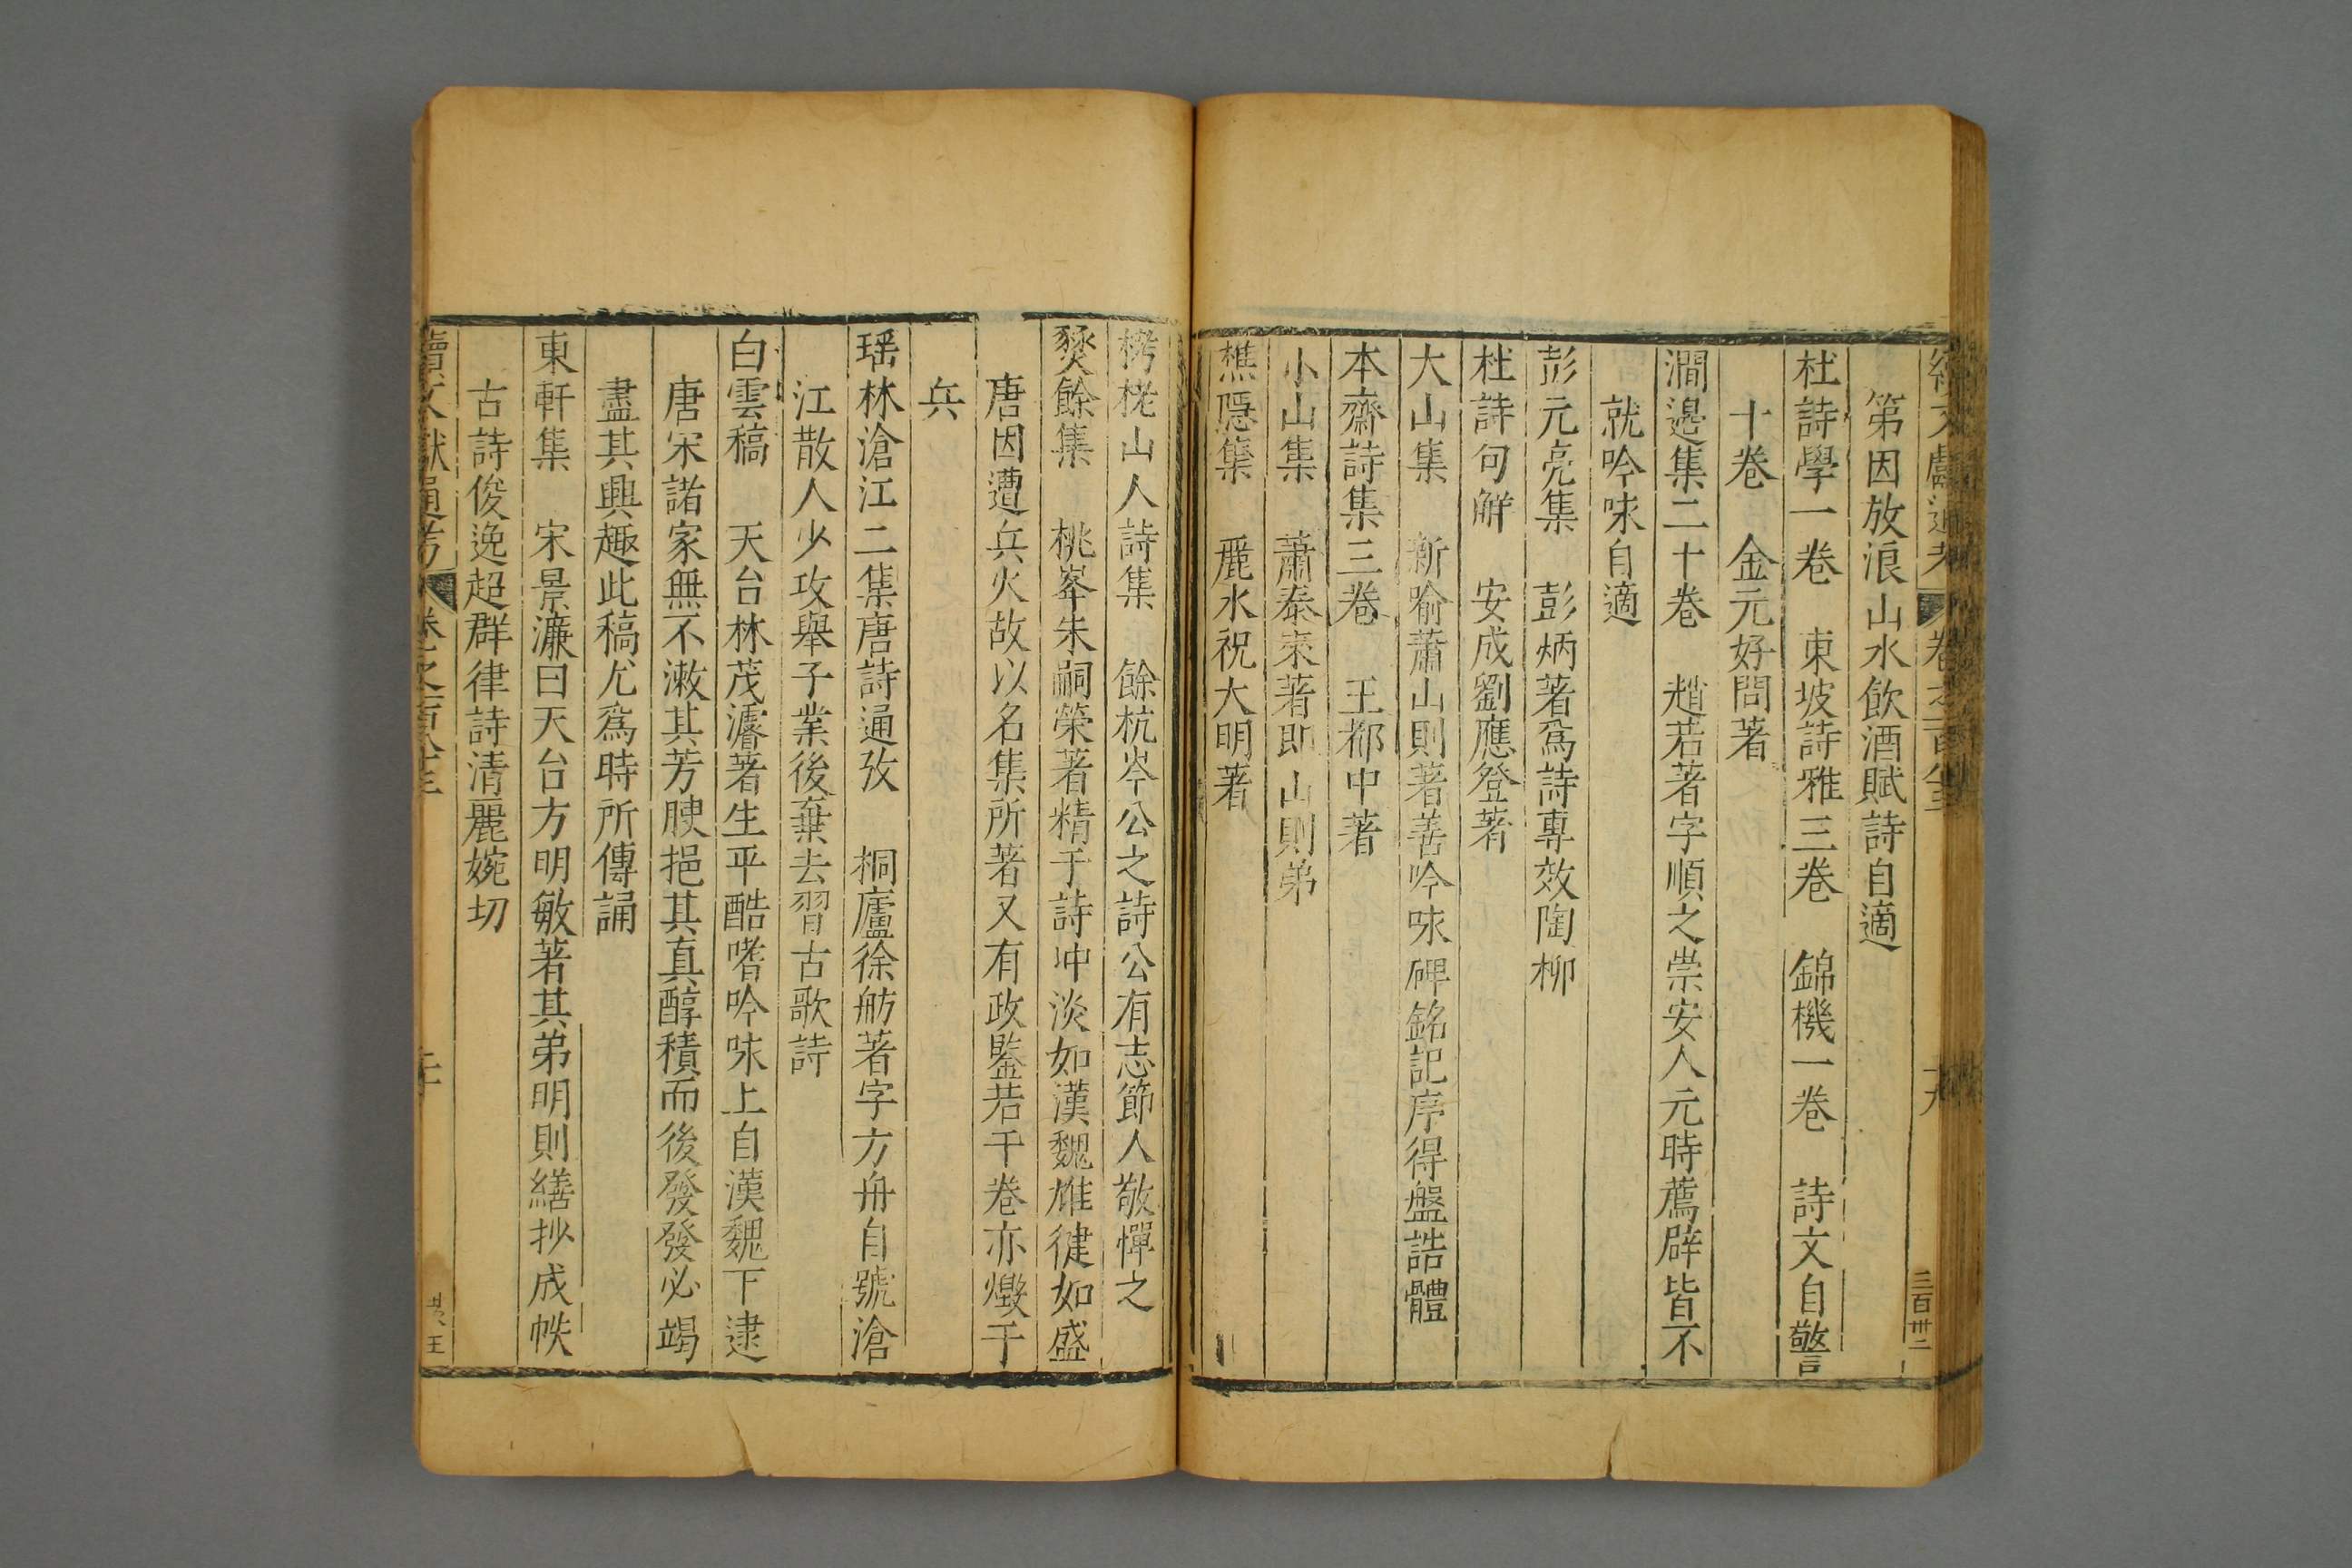 第因放浪山水飲酒賦詩自適
杜詩學一卷　東坡詩雅三卷　錦機一卷　詩文自警
十卷　金元好問著
澗邉集二十卷　趙若著字順之崇安人元時薦辟皆不
就吟咏自適
彭元亮集　彭炳著爲詩專效陶柳
杜詩句解　安成劉應登著
大山集　新喻蕭山則著善吟咏碑銘記序得盤誥體
本齋詩集三卷　王都中著
小山集　蕭泰來著即山則弟
樵隱集　麗水祝大明著
栲栳山人詩集　餘杭岑公之詩公有志節人敬憚之
爇餘集　桃峯朱嗣榮著精于詩冲淡如漢魏雄健如盛
唐因遭兵火故以名集所著又有政鑒若干卷亦燬于
兵
瑶林滄江二集唐詩通攷　桐廬徐舫著字方舟自號滄
江散人少攻舉子業後棄去習古歌詩
白雲稿　天台林茂濬著生平酷嗜吟咏上自漢魏下逮
唐宋諸家無不漱其芳腴挹其真醇積而後發發必竭
盡其興趣此稿尤爲時所傳誦
東軒集　宋景濂曰天台方明敏著其弟明則繕抄成帙
古詩俊逸超群律詩清麗婉切